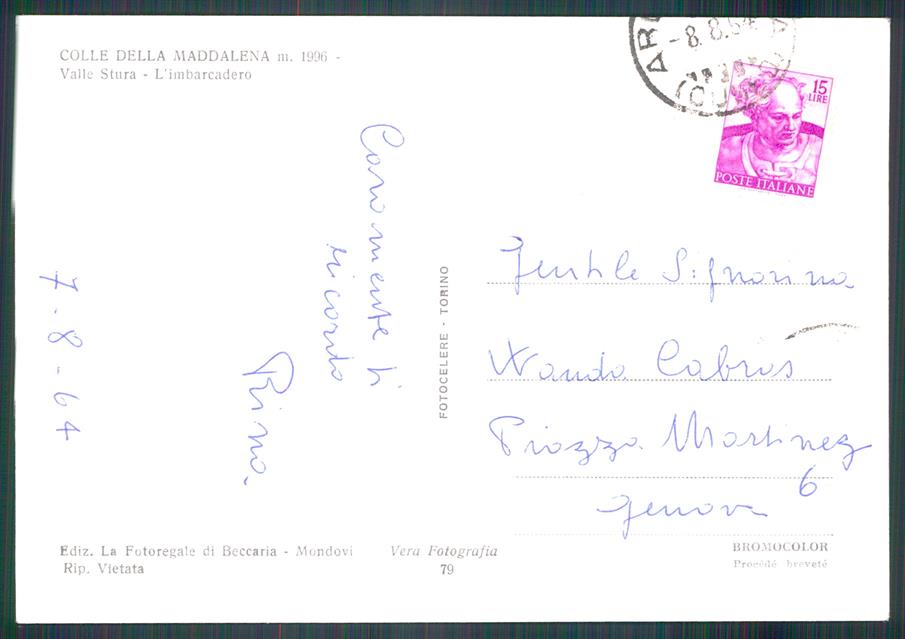 COLLE DELLA MADDALENA m. 1996 -
Valle Stura - L'imbarcadero
-8.8.64
15
LIRE
POSTE ITALIANE
Caramente ti
ricordo
Rino.
7-8-64
FOTOCELERE - TORINO
Gentile Signorina
Wanda Cabras
Piazza Martinez
6
Genova
Ediz. La Fotoregale di Beccaria - Mondovi
Rip. Vietata
Vera Fotografia
79
BROMOCOLOR
Procédé breveté